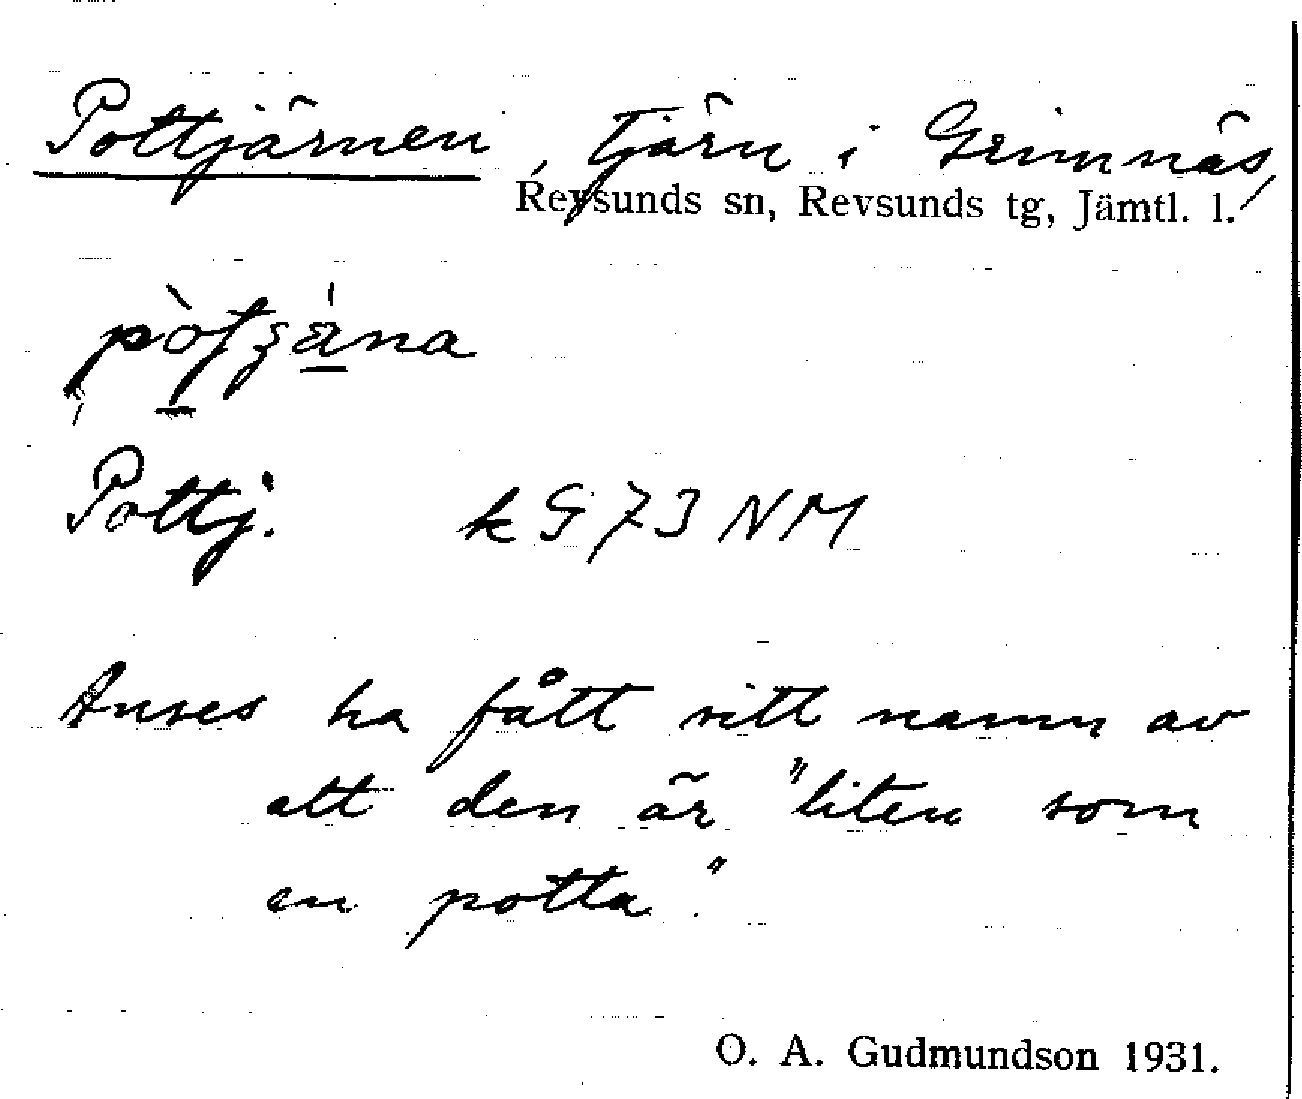 Pottjärnen, Tjärn i Grimnäs,
Revsunds sn, Revsunds tg, Jämtl. l.
Pottj. k G 73 NM
Anses ha fått sitt namn av
att den är "liten som
en potta."
O. A. Gudmundson 1931.